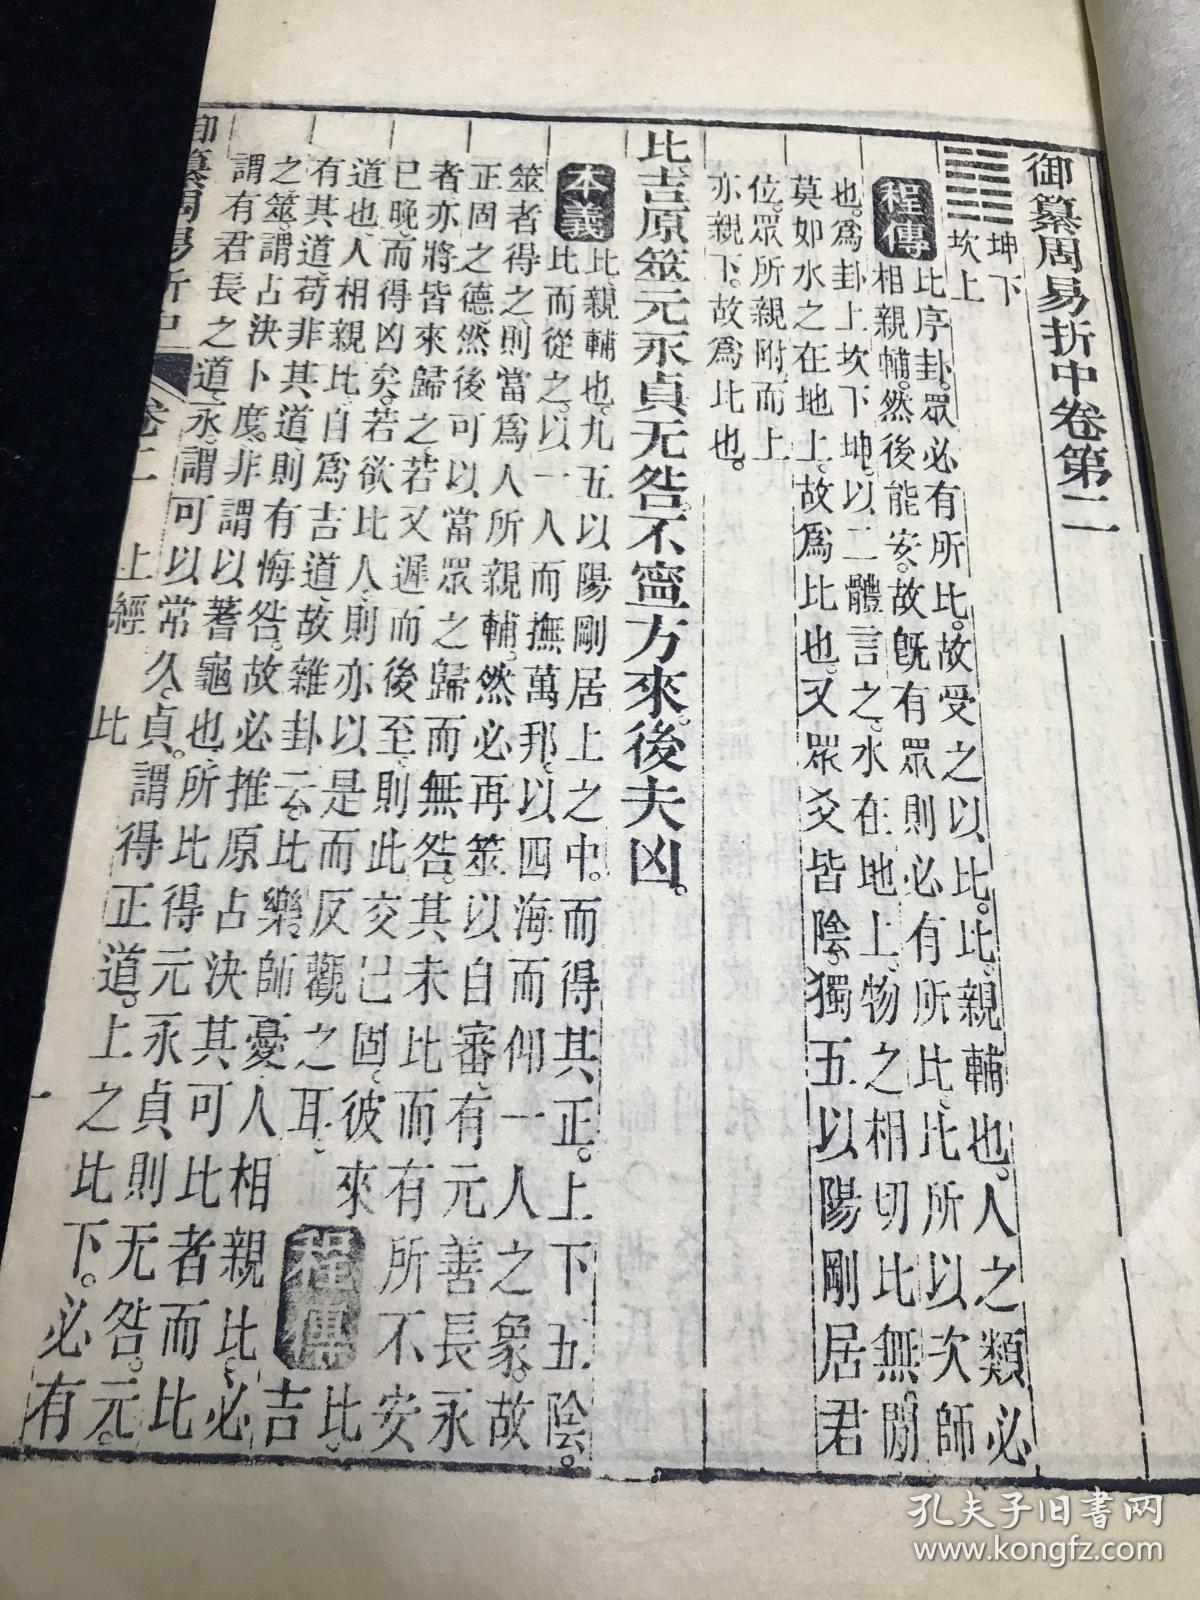 御纂周易折中卷第二
坤下
坎上
程傳
比序卦。眾必有所比。故受之以比。比、親輔也。人之類必
相親輔。然後能安。故既有眾則必有所比。比所以次師
也。爲卦上坎下坤。以二體言之。水在地上。物之相切比無閒
莫如水之在地上。故爲比也。又眾爻皆陰、獨五以陽剛居君
位。眾所親附。而上
亦親下。故爲比也。
比吉原筮元永貞无咎不寧方來。後夫凶。
本義
比、親輔也。九五以陽剛居上之中。而得其正。上下五陰。
比而從之。以一人而撫萬邦。以四海而仰一人之象。故
筮者得之、則當爲人所親輔。然必再筮以自審、有元善長永
正固之德、然後可以當眾之歸而無咎。其未比而有所不安
者、亦將皆來歸之。若又遲而後至、則此交已固、彼來
已晚、而得凶矣。若欲比人、則亦以是而反觀之耳。
程傳
比、吉
道也、人相親比、自爲吉道、故雜卦云。比樂、師憂、人相親比。必
有其道、苟非其道、則有悔咎。故必推原占決其可比者而比
之。筮、謂占決卜度。非謂以蓍龜也、所比得元永貞則无咎。元
謂有君長之道。永、謂可以常久。貞。謂得正道。上之比下。必有
御纂周易折中
卷二 上經 比
一
孔夫子旧书网
www.kongfz.com